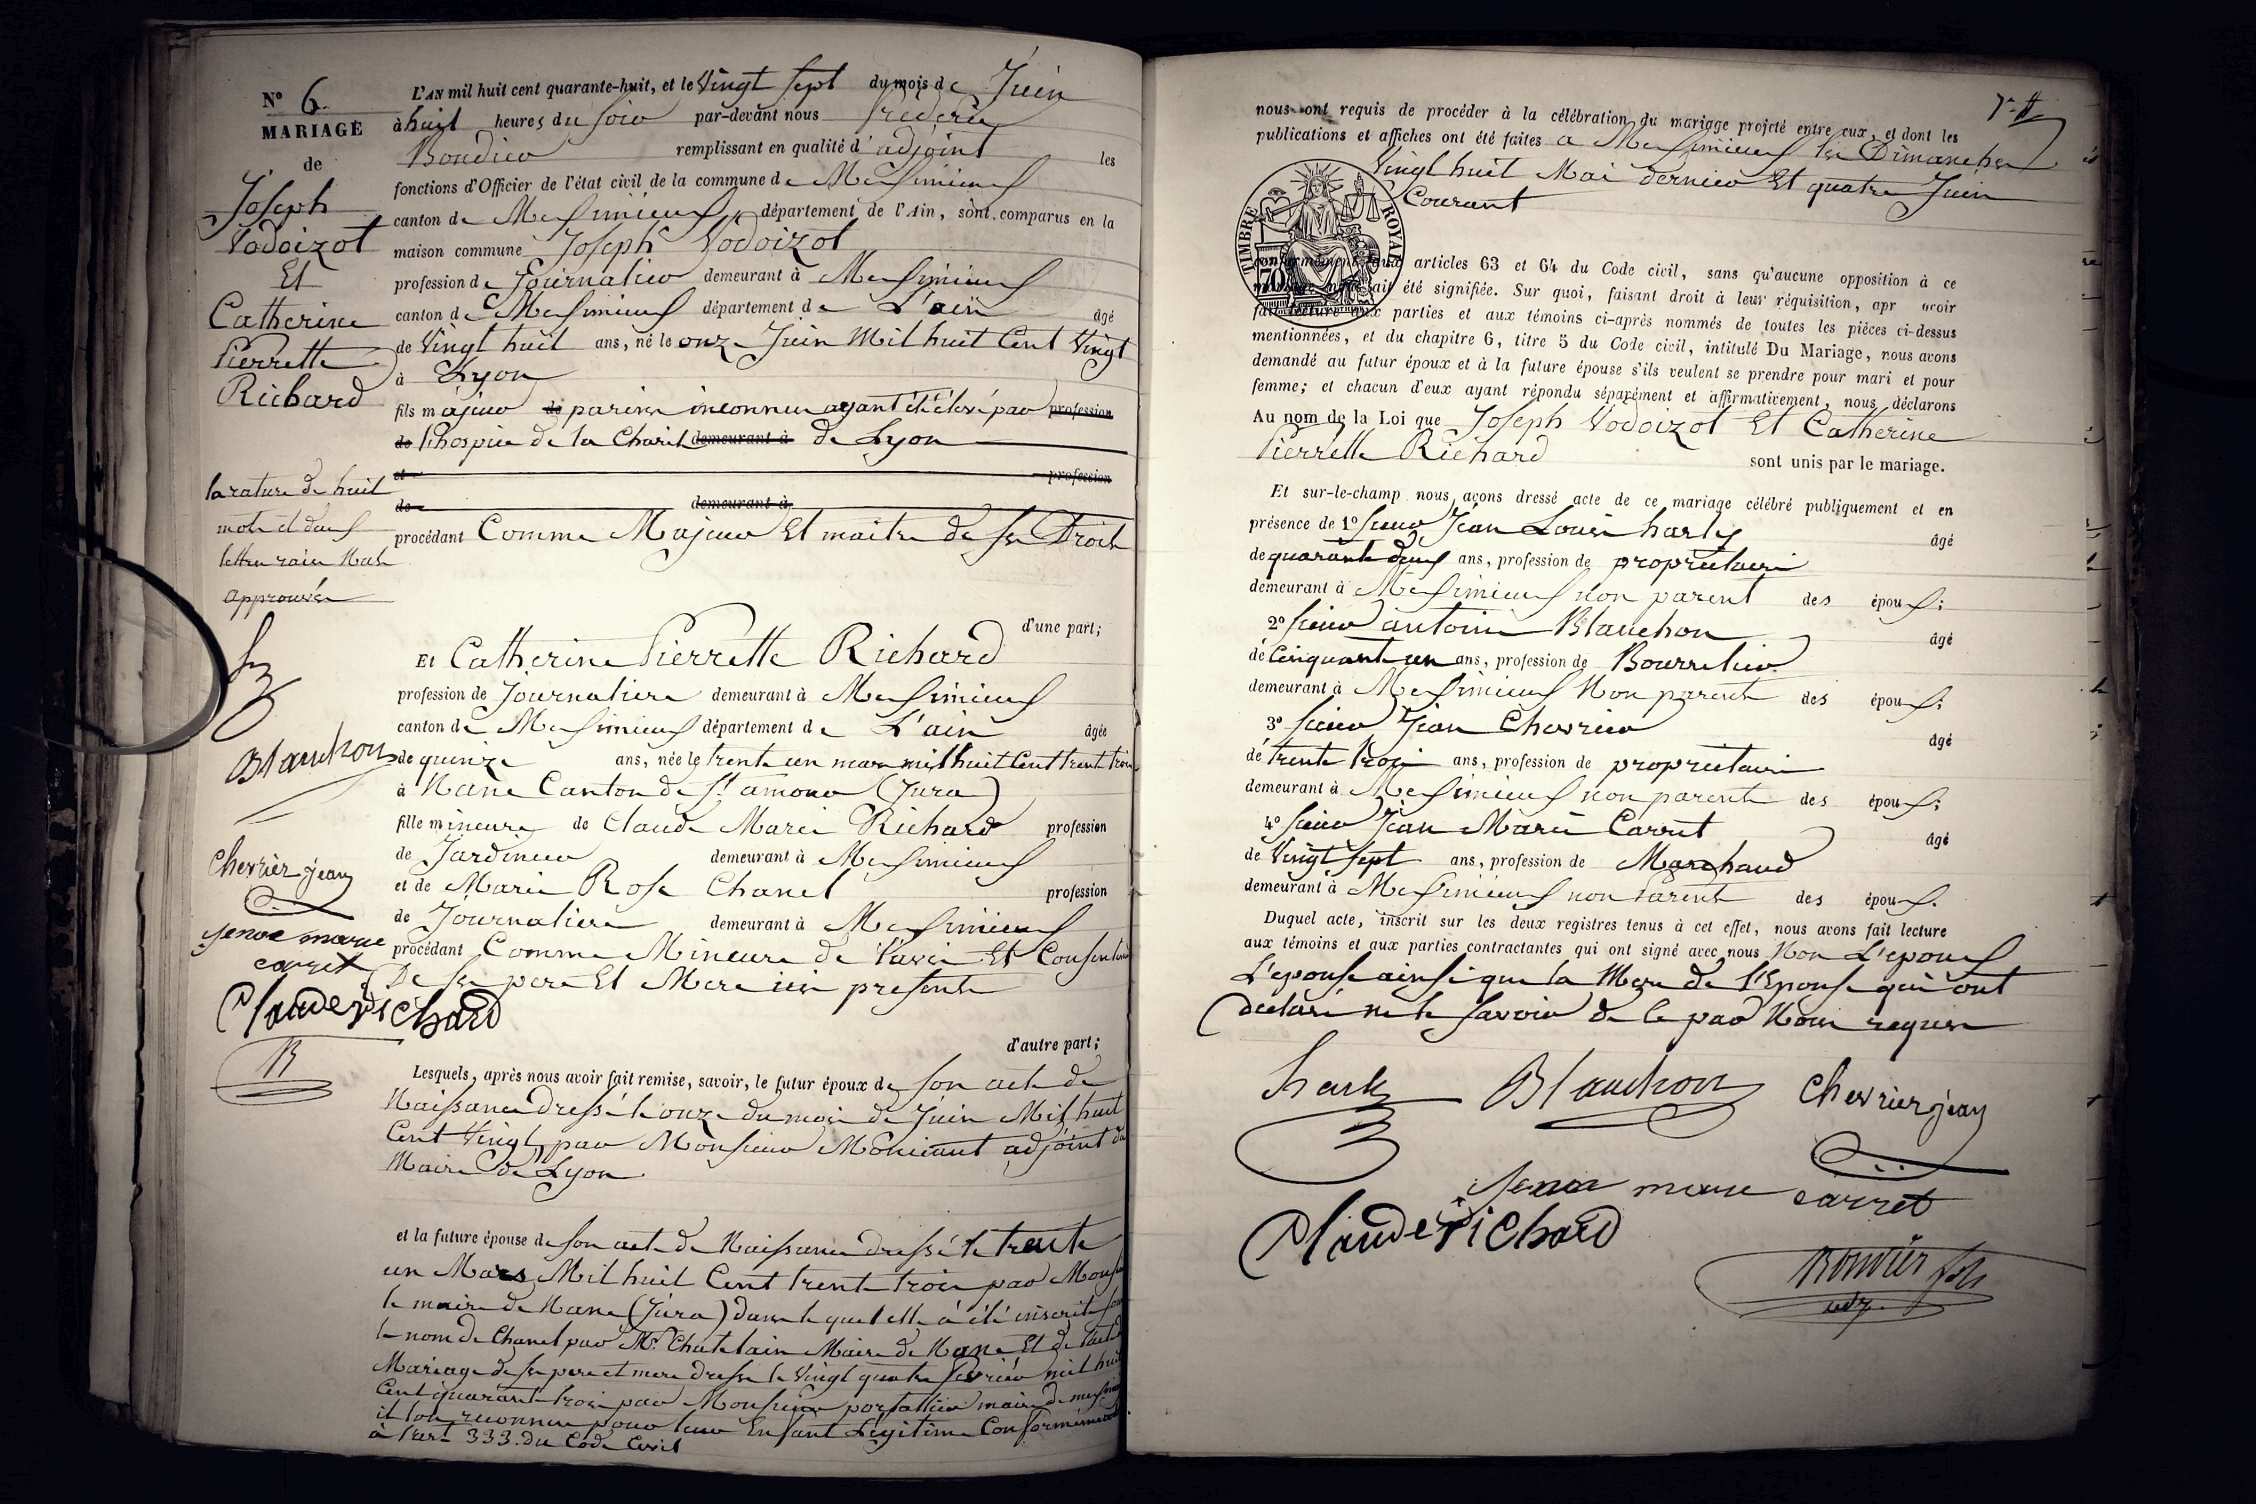 N° 6.
MARIAGE
de
Joseph
Vodoizot
Et
Catherine
Pierrette
Richard
la rature de huit
mots et deux
lettres raiés Nuls
approuvés
Blanchon
Chevrier jean
carret
Claude richard
R
L'AN mil huit cent quarante-huit, et le Vingt sept du mois de Juin
à huit heures du soir par-devant nous frederic
remplissant en qualité d'adjoint les
fonctions d'Officier de l'état civil de la commune de Meximieux
canton de Meximieux, département de l'Ain, sont comparus en la
maison commune Joseph Vodoizot
profession de Journalier demeurant à Meximieux
canton de Meximieux département de L'ain âgé
de Vingt huit ans, né le onze Juin Mil huit Cent Vingt
à Lyon
fils majeur de parens inconnus ayant été élevé par profession
de l'hospice de la Charité demeurant à de Lyon
et profession
de demeurant à
procédant Comme Majeur Et maitre de ses Droits
d'une part;
Et Catherine Pierrette Richard
profession de Journaliere demeurant à Meximieux
canton de Meximieux département de L'ain âgée
de quinze ans, née le trente un mars mil huit Cent trent trois
à Nanc Canton de St amour (Jura)
fille mineure de Claude Marie Richard profession
de Jardinier demeurant à Meximieux
et de Marie Rose Chanel profession
de Journaliere demeurant à Meximieux
procédant Comme Mineure de l'avis Et Consentement
De ses pere Et Mere ici presents
d'autre part;
Lesquels, après nous avoir fait remise, savoir, le futur époux de son acte de
Naissance dressé le onze du mois de Juin Mil huit
Cent Vingt par Monsieur adjoint du
Maire de Lyon
et la future épouse de son acte de Naissance dressé le trente
un Mars Mil huit Cent trent trois par Monsieur
le maire de Nanc (Jura) dans le quel elle à été inscrite sous
le nom de Chanel par Mr. Chatelain Maire de Nanc Et de l'acte de
Mariage de ses pere et mere dressé le Vingt quatre fevrier mil huit
Cent quarant trois par Monsieur portallier maire de meximieux
il l'ont reconnue pour leur Enfant Légitime Conformement
à l'art 333 du Code Civil
nous ont requis de procéder à la célébration du mariage projeté entre eux, et dont les
publications et affiches ont été faites a Meximieux les Dimanches
Vingt huit Mai dernier Et quatre Juin
Courant
TIMBRE ROYAL
70
conformément aux articles 63 et 64 du Code civil, sans qu'aucune opposition à ce
mariage nous ait été signifiée. Sur quoi, faisant droit à leur réquisition, apr avoir
fait lecture aux parties et aux témoins ci-après nommés de toutes les pièces ci-dessus
mentionnées, et du chapitre 6, titre 5 du Code civil, intitulé Du Mariage, nous avons
demandé au futur époux et à la future épouse s'ils veulent se prendre pour mari et pour
femme; et chacun d'eux ayant répondu séparément et affirmativement, nous déclarons
Au nom de la Loi que Joseph Vodoizot Et Catherine
Pierrette Richard sont unis par le mariage.
Et sur-le-champ nous avons dressé acte de ce mariage célébré publiquement et en
présence de 1° sieur Jean Louis harly âgé
de quarante deux ans, profession de propriétaire
demeurant à Meximieux non parent des époux;
2° sieur antoine Blanchon âgé
de Cinquante un ans, profession de Bourrelier
demeurant à Meximieux Non parent des époux;
3° sieur Jean Chevrier âgé
de trente trois ans, profession de propriétaire
demeurant à Meximieux non parent des époux;
4° sieur Jean Marie Carret âgé
de Vingt sept ans, profession de Marchand
demeurant à Meximieux non Parent des époux.
Duquel acte, inscrit sur les deux registres tenus à cet effet, nous avons fait lecture
aux témoins et aux parties contractantes qui ont signé avec nous Non L'epoux
L'epouse ainsi que la Mere de l'Epouse qui ont
declaré ne le savoir de Ce par Nous requis
Blanchon Chevrier jean
carret
Claude richard